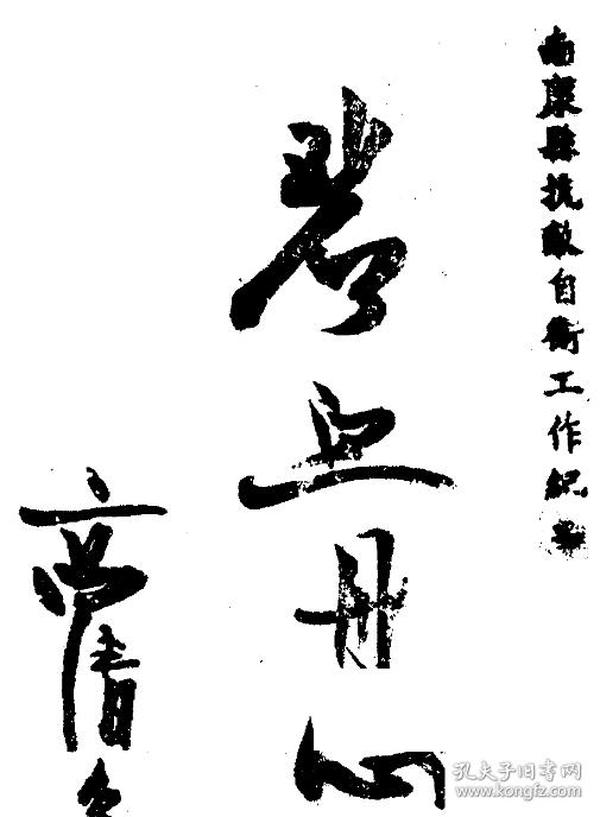 南康縣抗敵自衛工作紀
碧血丹心
孔夫子旧书网
www.kongfz.com